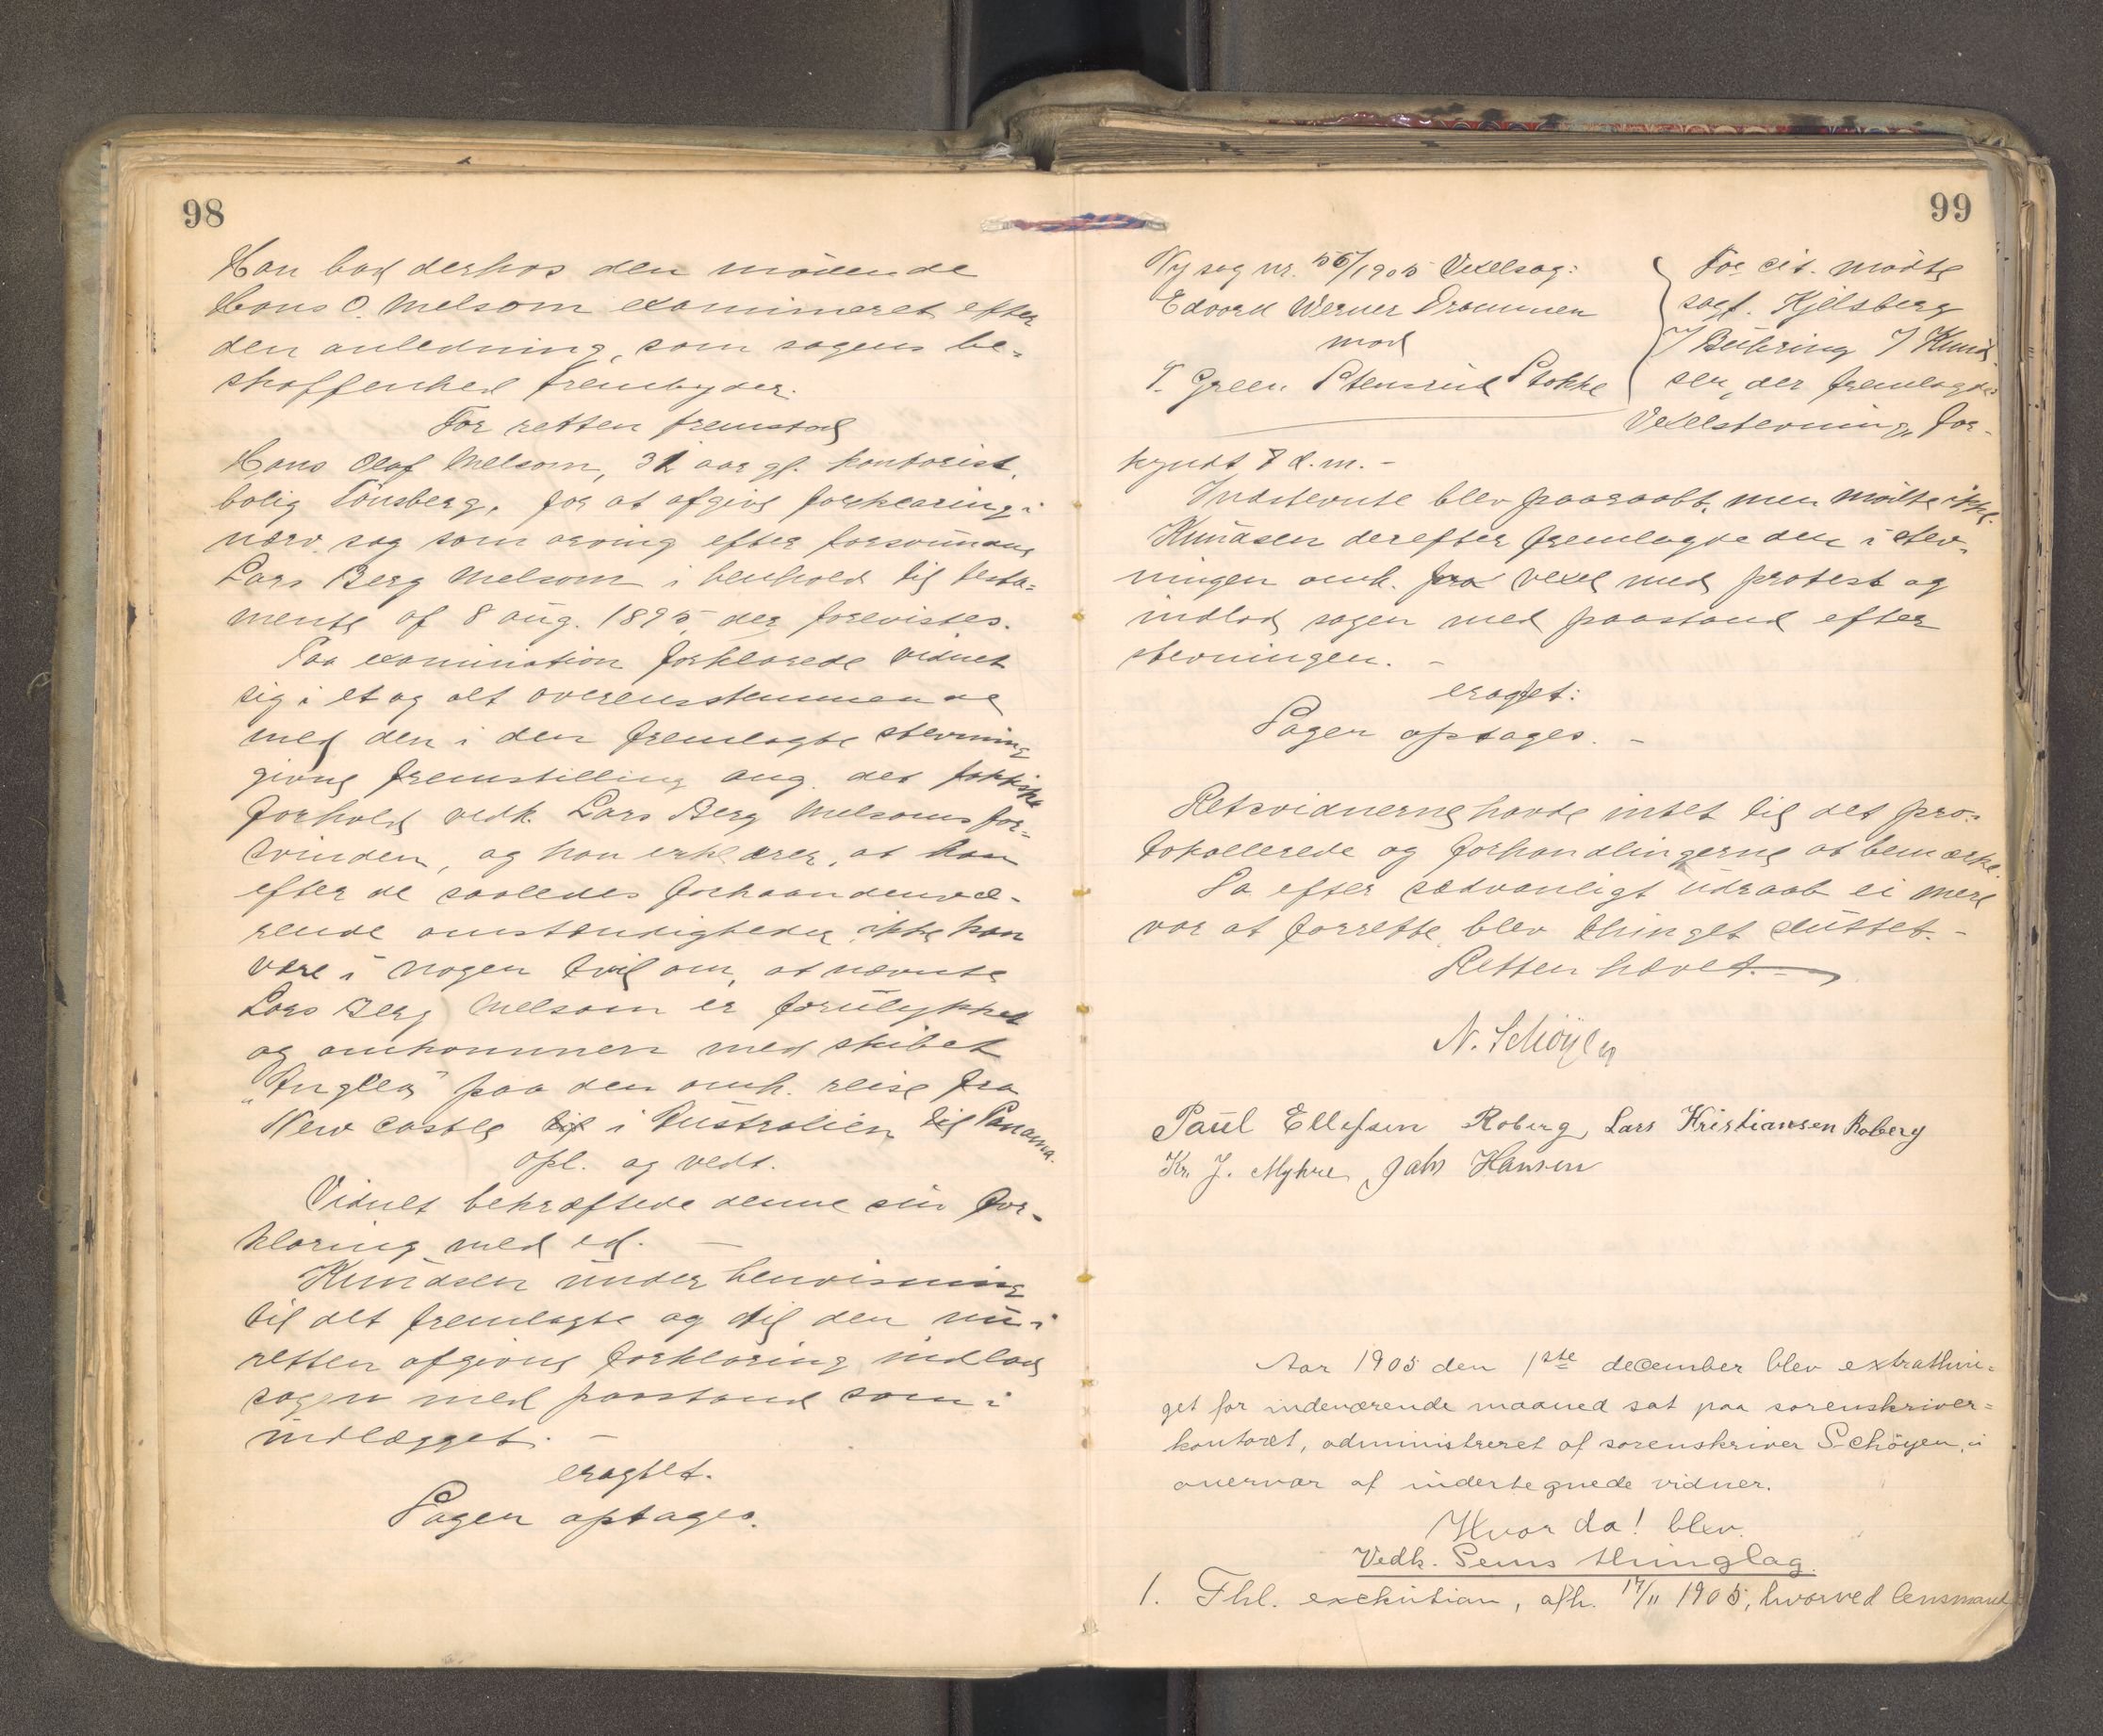 98
Han bad derhos den mödende
Hans O. Melsom examineret efter
den anledning, som sagens be-
skaffenhed frembyder.
For retten fremstod
Hans Olaf Melsom, 31 aar gl. kontorist,
bolig Tönsberg, for at afgive forklaring i
nærv. sag som arving efter forsvundne
Lars Berg Melsom i henhold til testa-
mente af 8 aug. 1895, der forevistes.
Paa examination forklarede vidnet
sig i et og alt overensstemmende
med den i den fremlagte stevning
givne fremstilling ang. det faktiske
forhold vedk. Lars Berg Melsoms for-
svinden, og han erklærer, at han
efter de saaledes forhaandenvæ-
rende omstændigheder ikke kan
være i nogen tvil om, at nævnte
Lars Berg Melsom er forulykket
og omkommen med skibet
"Anglea" paa den omh. reise fra
New castle til i Australien til Panama.
Opl. og vedt.
Vidnet bekræftede denne sin for-
klaring med ed. —
Knudsen under henvisning
til det fremlagte og til den nu i
retten afgivne forklaring indlod
sagen med paastand som i
indlægget. —
eragtet.
Sagen optages.
99
Ny sag nr. 56/1905 Vexelsag:
Edvard Werner Drammen
mod
T. Green Stensrud Stokke
For cit. mödte
sagf. Kjelsberg
v/ Bühring v/ Knud
sen, der fremlagde
Vexelstevning, for-
kyndt 7 d.m. -
Indstevnte blev paaraabt, men mödte ikke.
Knudsen derefter fremlagde den i stev-
ningen omh. pra vexel med protest og
indlod sagen med paastand efter
stevningen. -
eragtet:
Sagen optages. -
Retsvidnerne havde intet til det pro-
tokollerede og forhandlingerne at bemærke.
Da efter sædvanligt udraab ei mere
var at forrette, blev thinget sluttet. -
Retten hævet. -
N. Schöyen
Paul Ellefsen Roberg, Lars Kristiansen Roberg
Kr. J. Myhre, Jahs Hansen
Aar 1905 den 1ste december blev extrathin-
get for indeværende maaned sat paa sorenskriver-
kontoret, administreret af sorenskriver Schöyen, i
overvær af undertegnede vidner.
Hvor da! blev
Vedk. Sems thinglag.
1. Thl. exekution, afh. 17/11 1905, hvorved lensmand